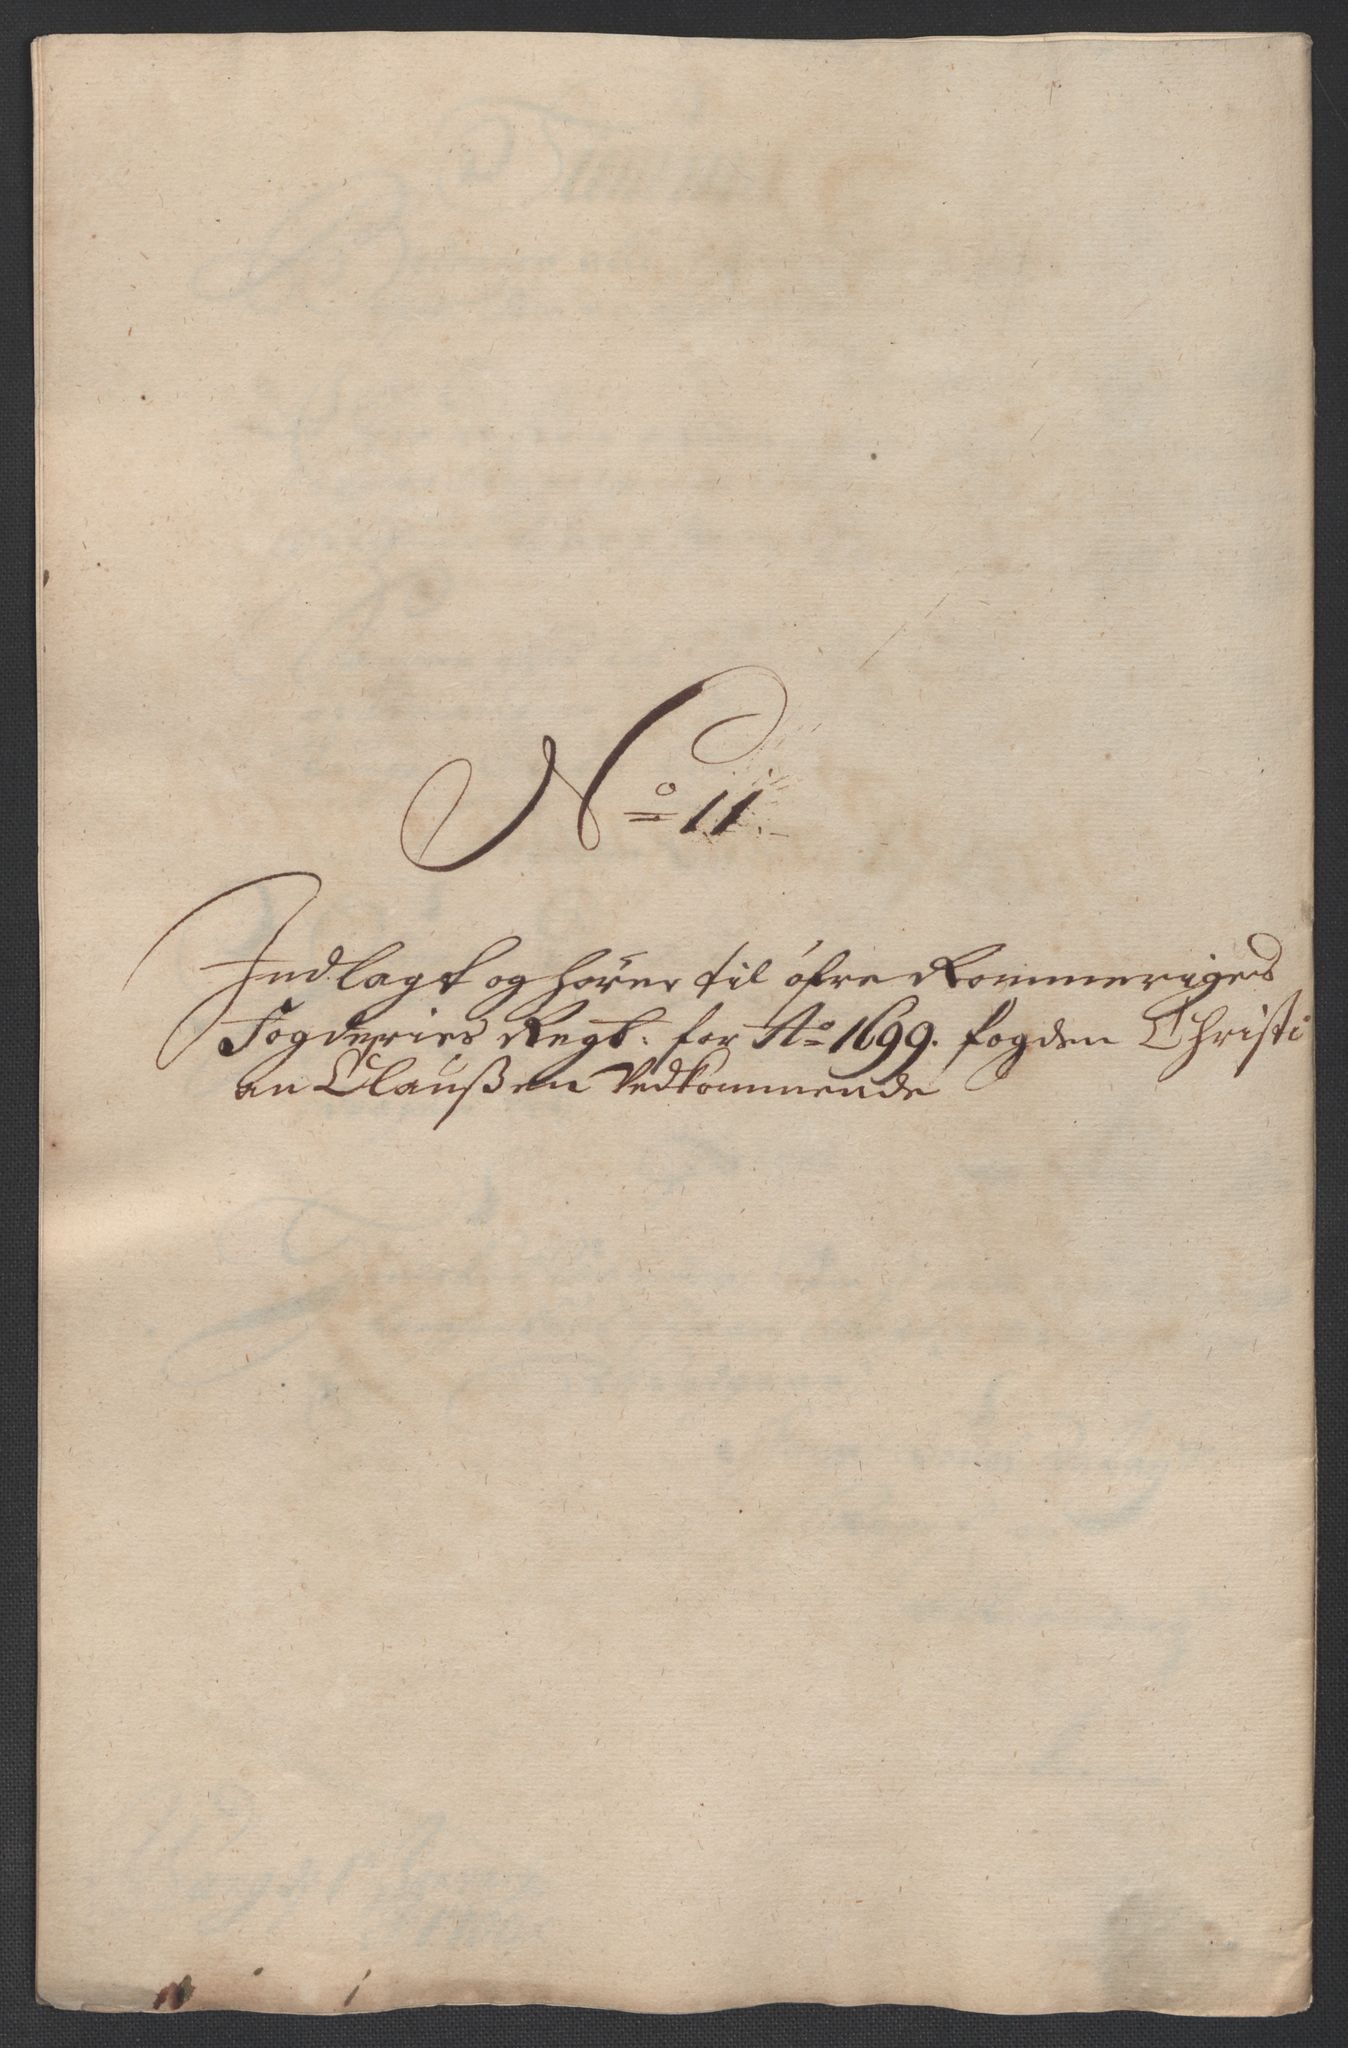 No 11.
Indlagt og hører til öfre Rommeriges
Fogderies Regb: for Ao 1699. fogden Christi
an Claußen Vedkommende